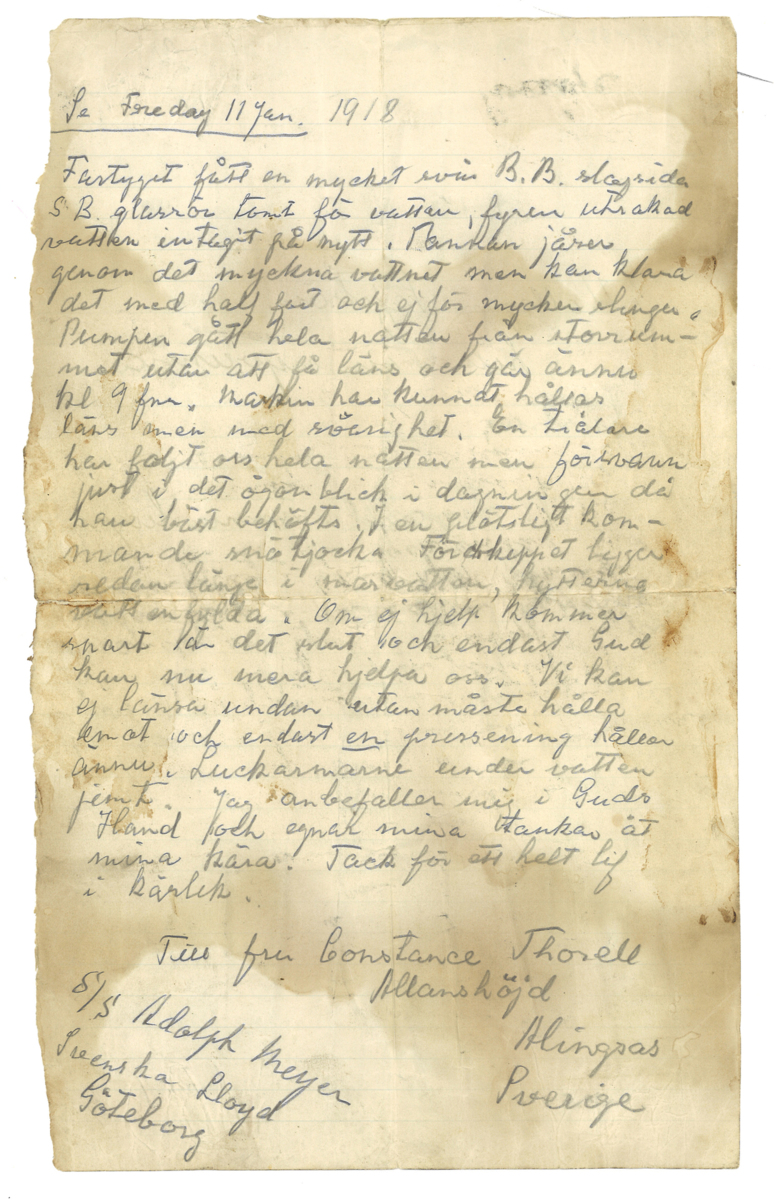 Se Freday 11 Jan. 1918
Fartyget fått en mycket svår B.B. slagsida
S B. glasrör tomt för vatten, fyren utrakad
vatten intagit på nytt. Pankan jäser
genom det myckna vattnet men kan klara
det med half fart och ej för mycken slinger.
Pumpen gått hela natten från storrum-
met utan att få läns och går ännu
kl 9 fm. Maskin har kunnat hållas
läns men med svårighet. En trålare
har foljt oss hela natten men försvann
just i det ögonblick i dagningen då
han bäst behöfts. I en plötsligt kom-
mande snötjocka Förskeppet ligger
redan länge i marvatten, hytterna
vattenfylda. Om ej hjelp kommer
snart är det slut och endast Gud
kan nu mera hjelpa oss. Vi kan
ej länsa undan utan måste hålla
emot och endast en pressening håller
ännu. Luckarmarne under vatten
jemt. Jag anbefaller mig i Guds
Hand och egnar mina tankar åt
mina kära. Tack för ett helt lif
i kärlek.
Till fru Constance Thorell
Allanshöjd
Alingsas
Sverige
S/S Adolph Meyer
Svenska Lloyd
Göteborg